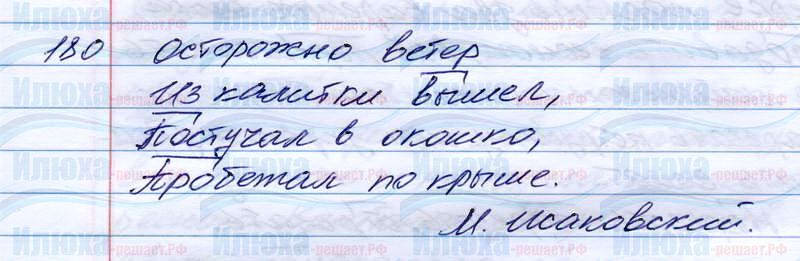 180 Осторожно ветер
Из калитки вышел,
Постучал в окошко,
Пробежал по крыше.
М. Исаковский.